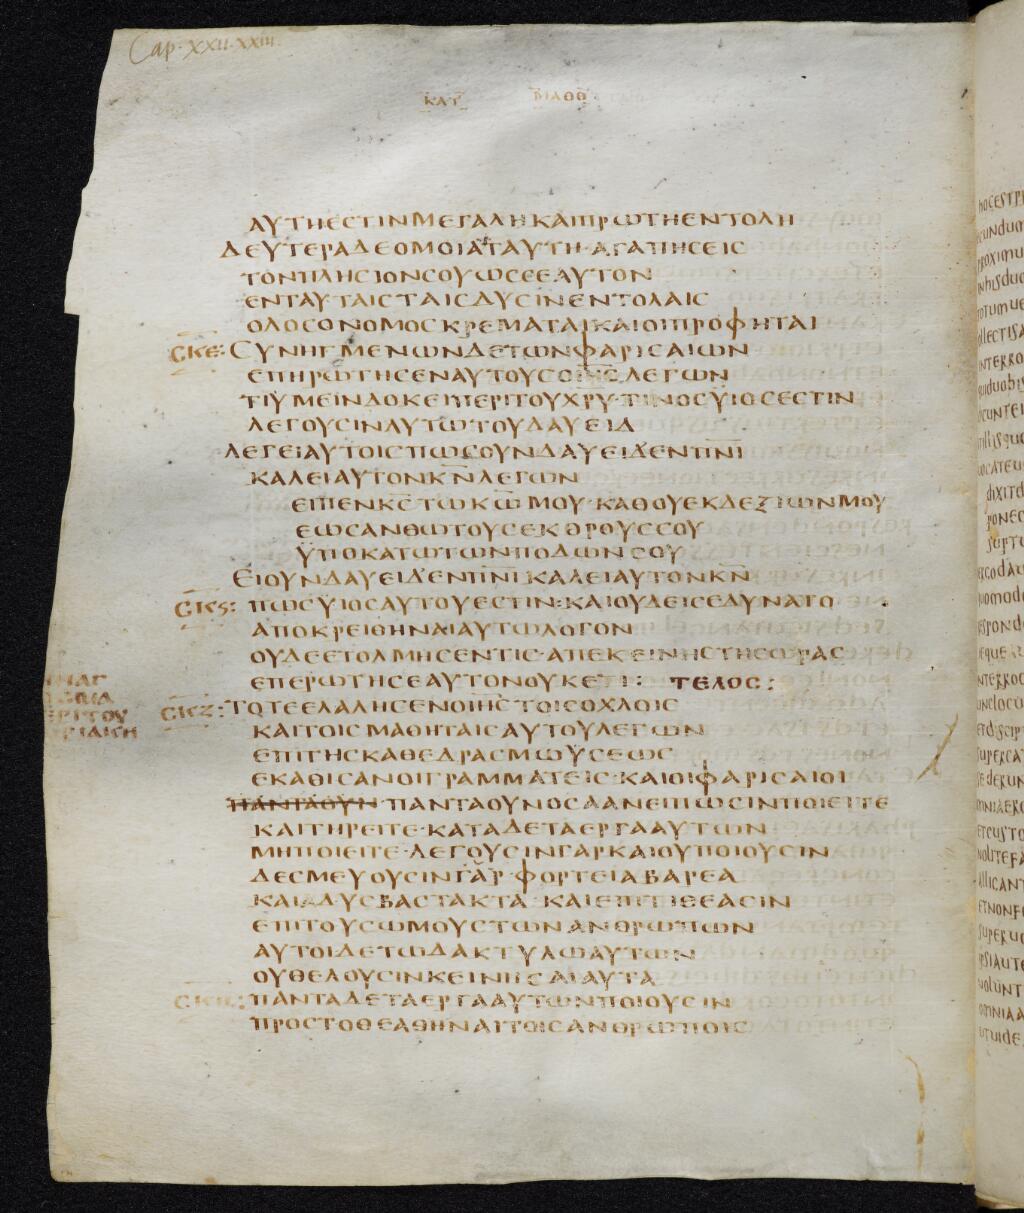 Cap. XXII. XXIII.
ΚΑΤ ΜΑΘΘ
ΑΥΤΗΕCΤΙΝΜΕΓΑΛΗΚΑΙΠΡΩΤΗΕΝΤΟΛΗ
ΔΕΥΤΕΡΑΔΕΟΜΟΙΑΤΑΥΤΗ·ΑΓΑΠΗCΕΙC
ΤΟΝΠΛΗCΙΟΝCΟΥΩCCΕΑΥΤΟΝ
ΕΝΤΑΥΤΑΙCΤΑΙCΔΥCΙΝΕΝΤΟΛΑΙC
ΟΛΟCΟΝΟΜΟCΚΡΕΜΑΤΑΙΚΑΙΟΙΠΡΟΦΗΤΑΙ
CΚΕ: CΥΝΗΓΜΕΝΩΝΔΕΤΩΝΦΑΡΙCΑΙΩΝ
ΕΠΗΡΩΤΗCΕΝΑΥΤΟΥCΟΙΗCΛΕΓΩΝ
ΤΙΥΜΕΙΝΔΟΚΕΙΠΕΡΙΤΟΥΧΡΥ·ΤΙΝΟCΫΙΟCΕCΤΙΝ
ΛΕΓΟΥCΙΝΑΥΤΩΤΟΥΔΑΥΕΙΔ
ΛΕΓΕΙΑΥΤΟΙCΠΩCΟΥΝΔΑΥΕΙΔΕΝΠΝΙ
ΚΑΛΕΙΑΥΤΟΝΚΝΛΕΓΩΝ
ΕΙΠΕΝΚCΤΩΚΩΜΟΥ·ΚΑΘΟΥΕΚΔΕΞΙΩΝΜΟΥ
ΕΩCΑΝΘΩΤΟΥCΕΚΘΡΟΥCCΟΥ
ΫΠΟΚΑΤΩΤΩΝΠΟΔΩΝCΟΥ
ΕΙΟΥΝΔΑΥΕΙΔΕΝΠΝΙΚΑΛΕΙΑΥΤΟΝΚΝ
CΚϚ: ΠΩCΫΙΟCΑΥΤΟΥΕCΤΙΝ:ΚΑΙΟΥΔΕΙCΕΔΥΝΑΤΟ
ΑΠΟΚΡΕΙΘΗΝΑΙΑΥΤΩΛΟΓΟΝ
ΟΥΔΕΕΤΟΛΜΗCΕΝΤΙC·ΑΠΕΚΕΙΝΗCΤΗCΩΡΑC
ΕΠΕΡΩΤΗCΕΑΥΤΟΝΟΥΚΕΤΙ: ΤΕΛΟC:
CΚΖ: ΤΟΤΕΕΛΑΛΗCΕΝΟΙΗCΤΟΙCΟΧΛΟΙC
ΚΑΙΤΟΙCΜΑΘΗΤΑΙCΑΥΤΟΥΛΕΓΩΝ
ΕΠΙΤΗCΚΑΘΕΔΡΑCΜΩΫCΕΩC
ΕΚΑΘΙCΑΝΟΙΓΡΑΜΜΑΤΕΙC·ΚΑΙΟΙΦΑΡΙCΑΙΟΙ
ΠΑΝΤΑΟΥΝ·ΠΑΝΤΑΟΥΝΟCΑΑΝΕΙΠΩCΙΝΠΟΙΕΙΤΕ
ΚΑΙΤΗΡΕΙΤΕ·ΚΑΤΑΔΕΤΑΕΡΓΑΑΥΤΩΝ
ΜΗΠΟΙΕΙΤΕ·ΛΕΓΟΥCΙΝΓΑΡΚΑΙΟΥΠΟΙΟΥCΙΝ
ΔΕCΜΕΥΟΥCΙΝΓΑΡ·ΦΟΡΤΕΙΑΒΑΡΕΑ
ΚΑΙΑΔΥCΒΑCΤΑΚΤΑ·ΚΑΙΕΠΙΤΙΘΕΑCΙΝ
ΕΠΙΤΟΥCΩΜΟΥCΤΩΝΑΝΘΡΩΠΩΝ
ΑΥΤΟΙΔΕΤΩΔΑΚΤΥΛΩΑΥΤΩΝ
ΟΥΘΕΛΟΥCΙΝΚΕΙΝΗCΑΙΑΥΤΑ
CΚΗ: ΠΑΝΤΑΔΕΤΑΕΡΓΑΑΥΤΩΝΠΟΙΟΥCΙΝ
ΠΡΟCΤΟΘΕΑΘΗΝΑΙΤΟΙCΑΝΘΡΩΠΟΙC